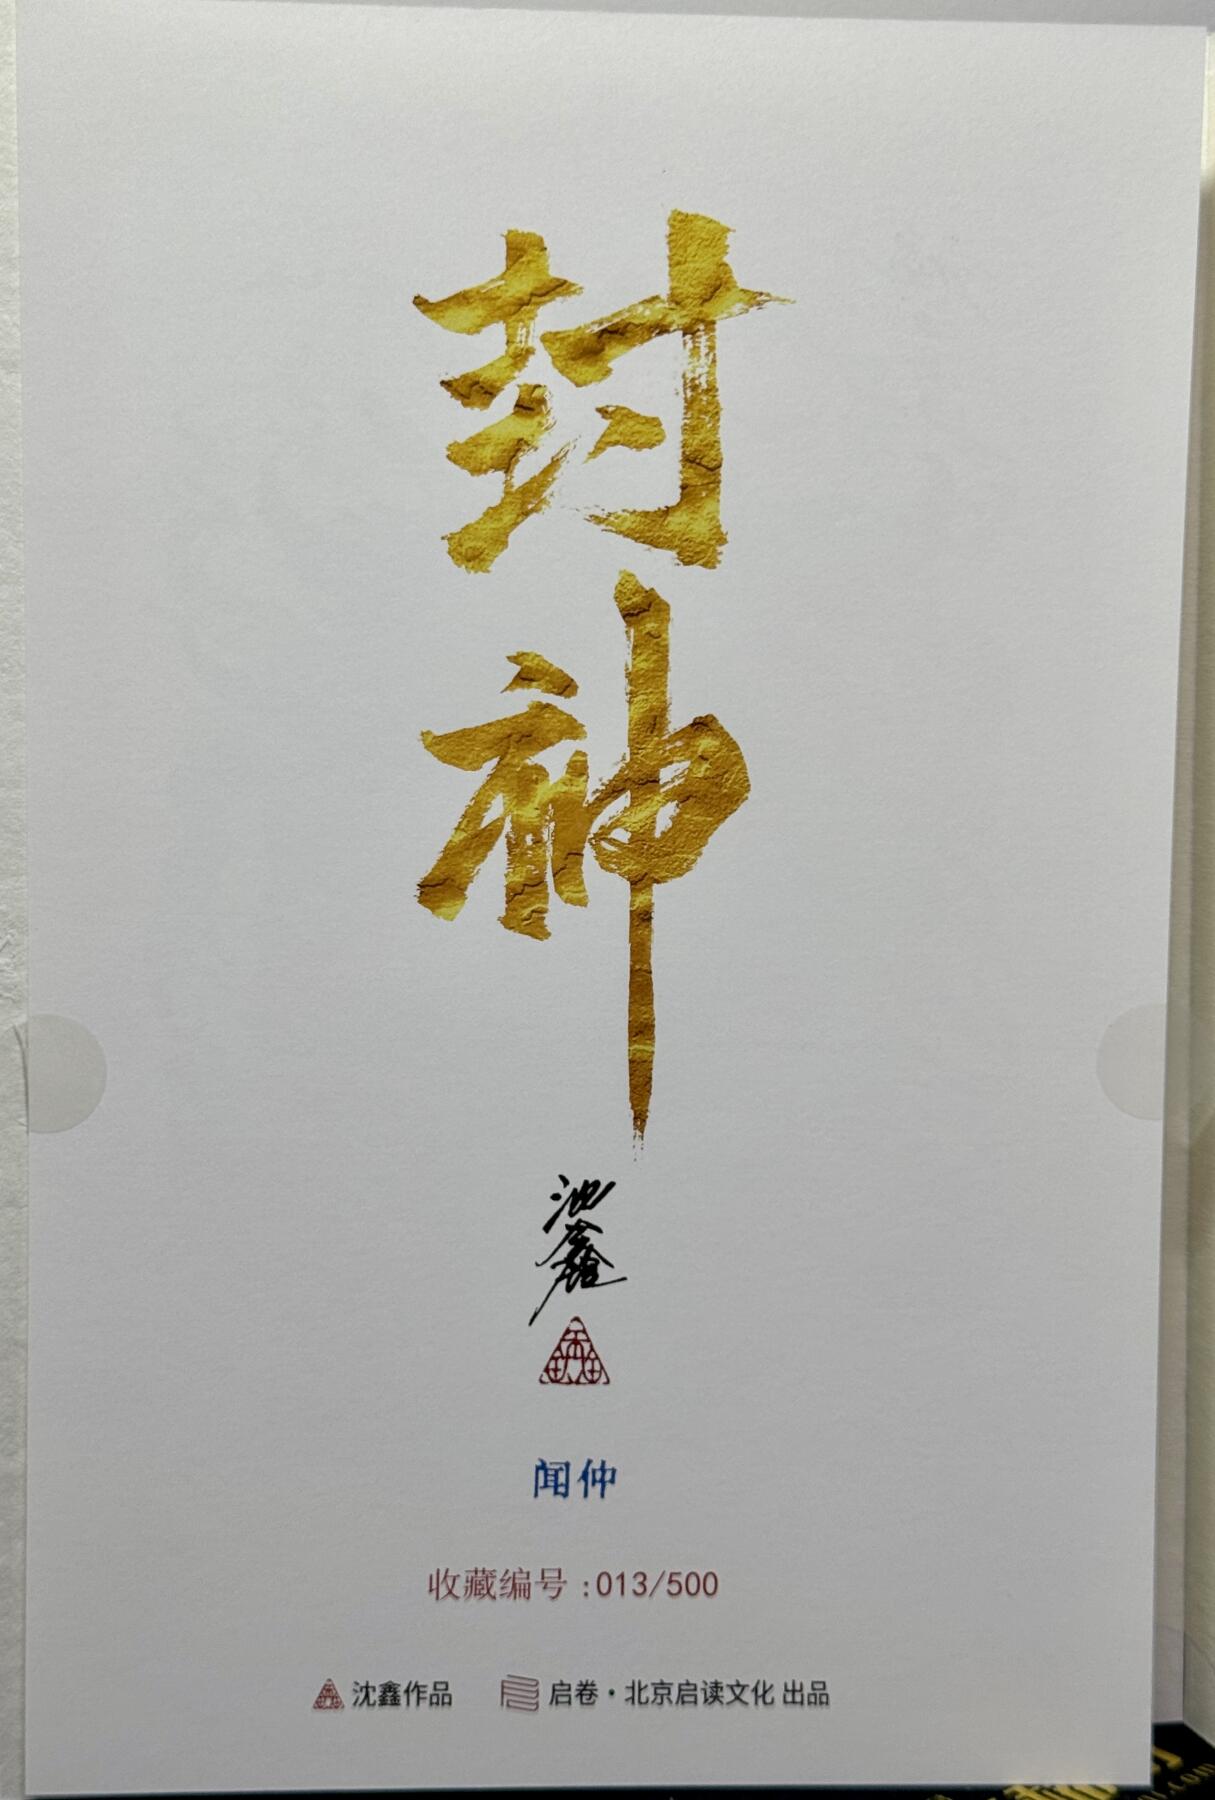 封神
沈鑫
闻仲
收藏编号:013/500
沈鑫作品 启卷·北京启读文化 出品